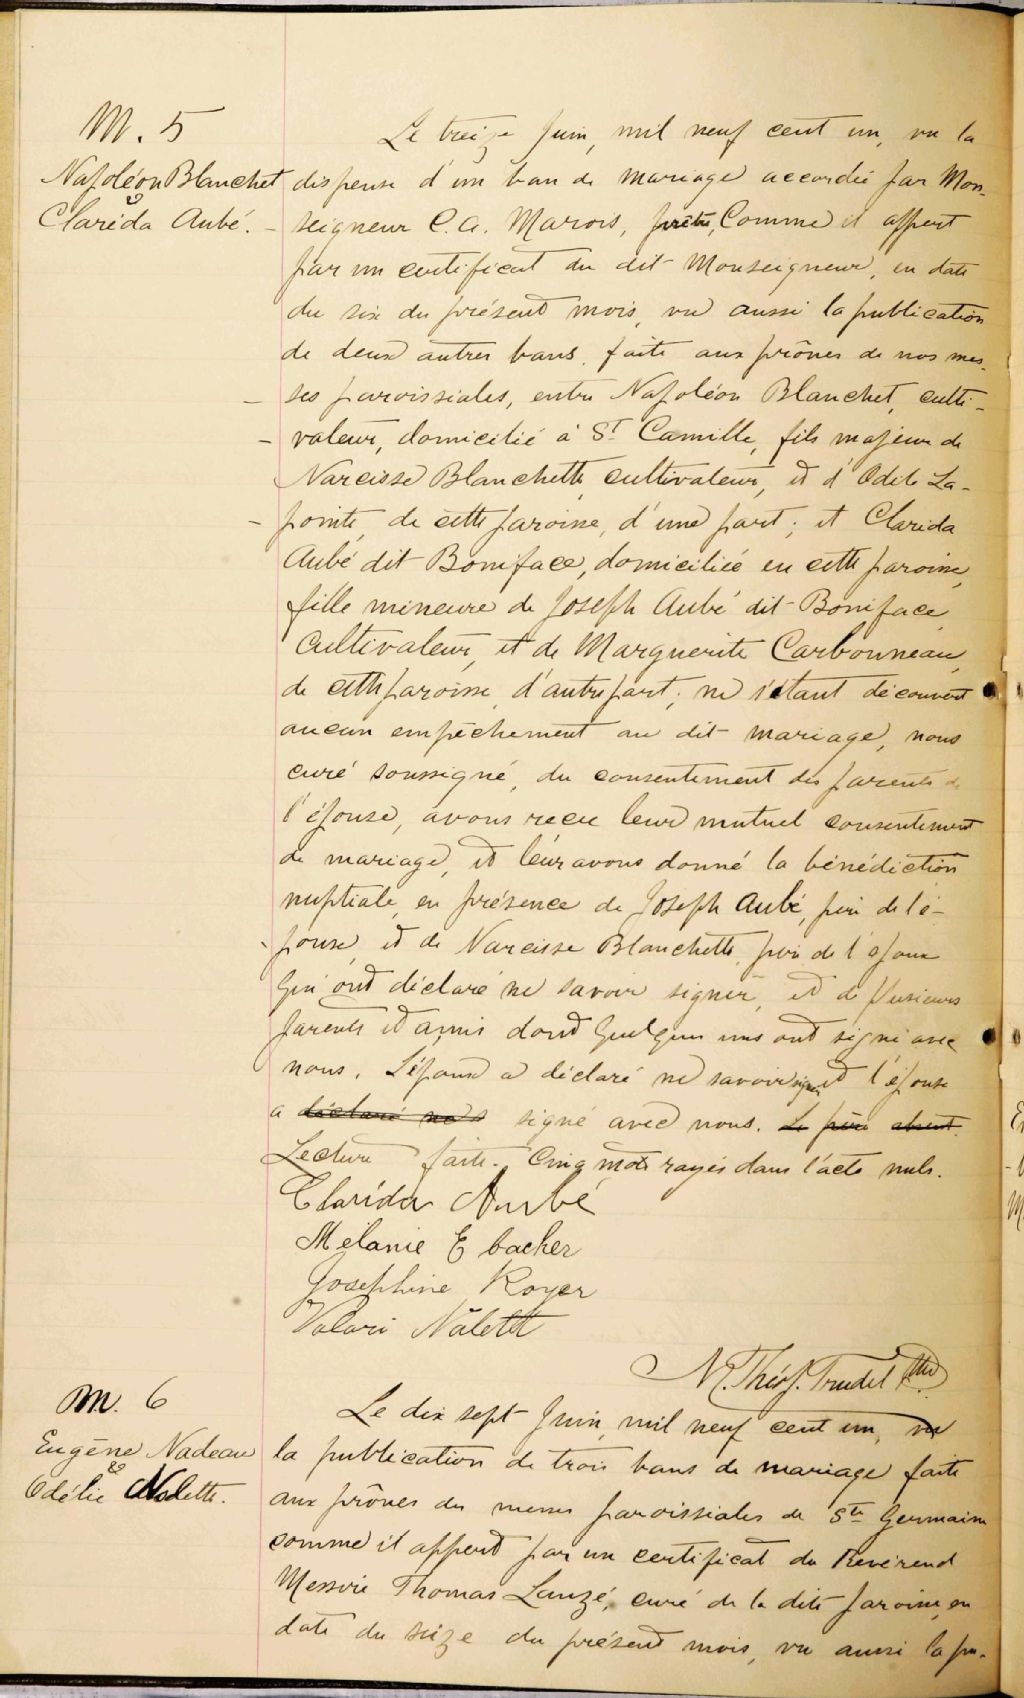 M. 5
Napoléon Blanchet
&
Clarida Aubé.
Le treize Juin, mil neuf cent un, vu la
dispense d'un ban de mariage accordée par Mon-
seigneur C. A. Marois, prêtre, Comme il appert
par un certificat du dit Monseigneur, en date
du six du présent mois, vu aussi la publication
de deux autres bans faite aux prônes de nos mes-
ses paroissiales, entre Napoléon Blanchet, culti-
vateur, domicilié à St Camille, fils majeur de
Narcisse Blanchette cultivateur, et d'Odile La-
pointe, de cette paroisse, d'une part; et Clarida
Aubé dit Boniface, domiciliée en cette paroisse,
fille mineure de Joseph Aubé dit Boniface,
cultivateur, et de Marguerite Carbonneau,
de cette paroisse, d'autre part; ne s'étant découvert
aucun empêchement au dit mariage, nous
curé soussigné, du consentement des parents de
l'épouse, avons reçu leur mutuel consentement
de mariage, et leur avons donné la bénédiction
nuptiale, en présence de Joseph Aubé, père de l'é-
pouse, et de Narcisse Blanchette, père de l'époux
qui ont déclaré ne savoir signer, et de plusieurs
parents et amis dont quelques uns ont signé avec
nous. L'époux a déclaré ne savoir signer et l'épouse
a déclaré ne s signé avec nous. Le père absent.
Lecture faite. Cinq mots rayés dans l'acte nuls.
Clarida Aubé
Mélanie E bacher
Josephine Royer
Valari Nalett
N. Théop. Trudel Ptre
M. 6
Eugène Nadeau
&
Odélie Nolette.
Le dix sept Juin, mil neuf cent un, vu
la publication de trois bans de mariage faite
aux prônes des messes paroissiales de Ste Germaine
comme il appert par un certificat du Révérend
Messire Thomas Lauzé, curé de la dite paroisse, en
date du seize du présent mois, vu aussi la pu-